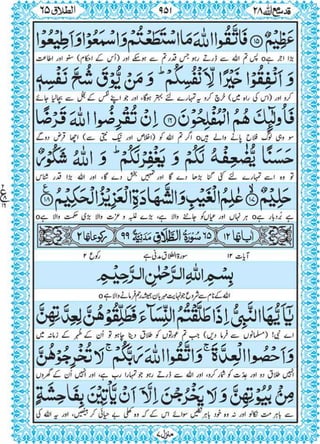 قد سمع الله ٢٨
٩٥١
الطلاق ٦٥
عَظِيْمٌ ﴿١٥﴾ فَاتَّقُوا اللّٰهَ مَا اسْتَطَعْتُمْ وَاسْمَعُوْا وَاَطِيْعُوْا
بڑا اجر ہے ٥ پس تم اللہ سے ڈرتے رہو جس قدر تم سے ہوسکے اور (اُس کے احکام) سنو اور اطاعت
وَاَنْفِقُوْا خَيْرًا لِّاَنْفُسِكُمْ ؕ وَمَنْ يُّوْقَ شُحَّ نَفْسِهٖ
کرو اور (اس کی راہ میں) خرچ کرو یہ تمہارے لئے بہتر ہوگا، اور جو اپنے نفس کے بخل سے بچا لیا جائے
فَاُولٰٓئِكَ هُمُ الْمُفْلِحُوْنَ ﴿١٦﴾ اِنْ تُقْرِضُوا اللّٰهَ قَرْضًا
سو وہی لوگ فلاح پانے والے ہیں ٥ اگر تم اللہ کو (اخلاص اور نیک نیتی سے) اچھا قرض دوگے
حَسَنًا يُّضٰعِفْهُ لَكُمْ وَيَغْفِرْ لَكُمْ ؕ وَاللّٰهُ شَكُوْرٌ
تو وہ اسے تمہارے لئے کئی گنا بڑھا دے گا اور تمہیں بخش دے گا، اور اللہ بڑا قدر شناس
حَلِيْمٌ ﴿١٧﴾ عٰلِمُ الْغَيْبِ وَالشَّهَادَةِ الْعَزِيْزُ الْحَكِيْمُ ﴿١٨﴾
ہے بُردبار ہے ٥ ہر نہاں اور عیاں کو جاننے والا ہے، بڑے غلبہ و عزت والا بڑی حکمت والا ہے ٥
اٰياتها ١٢ ٦٥ سُوْرَةُ الطَّلَاقِ مَدَنِيَّةٌ ٩٩ ركوعاتها ٢
آیات ١٢ سورۃ الطلاق مدنی ہے رکوع ٢
بِسْمِ اللّٰهِ الرَّحْمٰنِ الرَّحِيْمِ
اللہ کے نام سے شروع جو نہایت مہربان ہمیشہ رحم فرمانے والا ہے ٥
يٰٓاَيُّهَا النَّبِيُّ اِذَا طَلَّقْتُمُ النِّسَآءَ فَطَلِّقُوْهُنَّ لِعِدَّتِهِنَّ
اے نبی! (مسلمانوں سے فرما دیں) جب تم عورتوں کو طلاق دینا چاہو تو اُن کے طُہر کے زمانہ میں
وَاَحْصُوا الْعِدَّةَ ۚ وَاتَّقُوا اللّٰهَ رَبَّكُمْ ۚ لَا تُخْرِجُوْهُنَّ
انہیں طلاق دو اور عدّت کو شمار کرو، اور اللہ سے ڈرتے رہو جو تمہارا رب ہے، اور انہیں اُن کے گھروں
مِنْۢ بُيُوْتِهِنَّ وَلَا يَخْرُجْنَ اِلَّآ اَنْ يَّاْتِيْنَ بِفَاحِشَةٍ
سے باہر مت نکالو اور نہ وہ خود باہر نکلیں سوائے اس کے کہ وہ کھلی بے حیائی کر بیٹھیں، اور یہ اللہ کی
منزل ٧